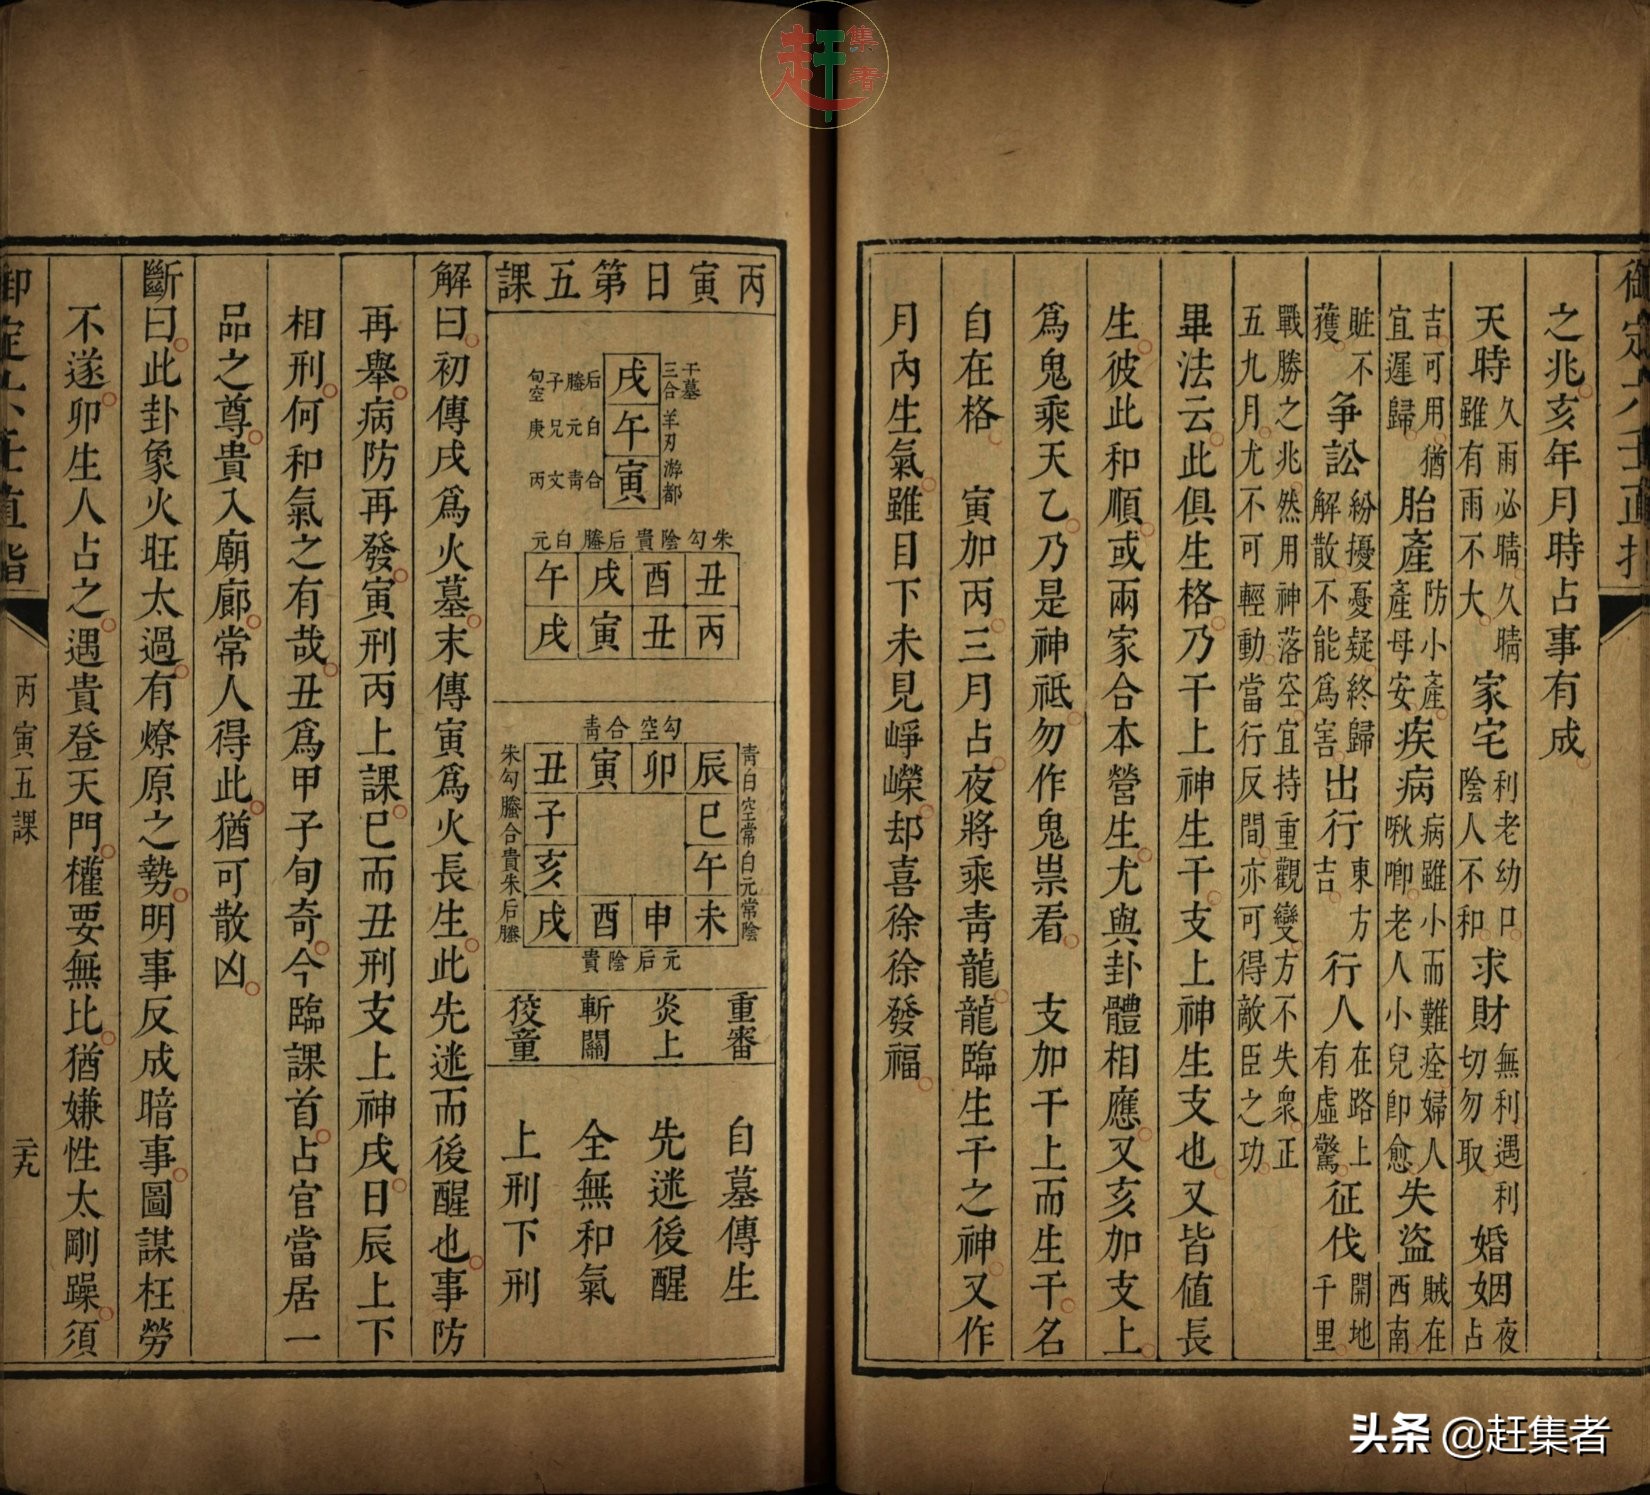 御定六壬直指
之兆亥年月時占事有成
天時久雨必晴久晴雖有雨不大家宅利老幼口陰人不和求財無利遇利切勿取婚姻夜占
吉可用猶宜遲歸胎產防小產產母安疾病病雖小而難痊婦人啾唧老人小兒卽愈失盜賊在西南
賍不獲爭訟紛擾憂疑終歸解散不能爲害出行東方吉行人在路上有虛驚征伐開地千里
戰勝之兆然用神落空宜持重觀變方不失衆正五九月尤不可輕動當行反間亦可得敵臣之功
畢法云此俱生格乃干上神生干支上神生支也又皆值長
生彼此和順或兩家合本營生尤與卦體相應又亥加支上
爲鬼乘天乙乃是神祇勿作鬼祟看　支加干上而生干名
自在格　寅加丙三月占夜將乘青龍龍臨生干之神又作
月內生氣雖目下未見崢嶸却喜徐徐發福
丙寅日第五課
干墓三合戌后螣子旬空
羊刃午白元兄庚
游都寅合青文丙
朱勾陰貴后螣白元
丑酉戌午
丙丑寅戌
勾空合青
辰卯寅丑
巳子
午亥
未申酉戌
青白空常白元常陰
朱勾螣合貴朱后螣
元后陰貴
重審
炎上
斬關
狡童
自墓傳生
先迷後醒
全無和氣
上刑下刑
解曰初傳戌爲火墓末傳寅爲火長生此先迷而後醒也事防
再舉病防再發寅刑丙上課巳而丑刑支上神戌日辰上下
相刑何和氣之有哉丑爲甲子旬奇今臨課首占官當居一
品之尊貴入廟廊常人得此猶可散凶
斷曰此卦象火旺太過有燎原之勢明事反成暗事圖謀枉勞
不遂卯生人占之遇貴登天門權要無比猶嫌性太剛躁須
御定六壬直指
丙寅五課
二十九
赶集者
头条 @赶集者